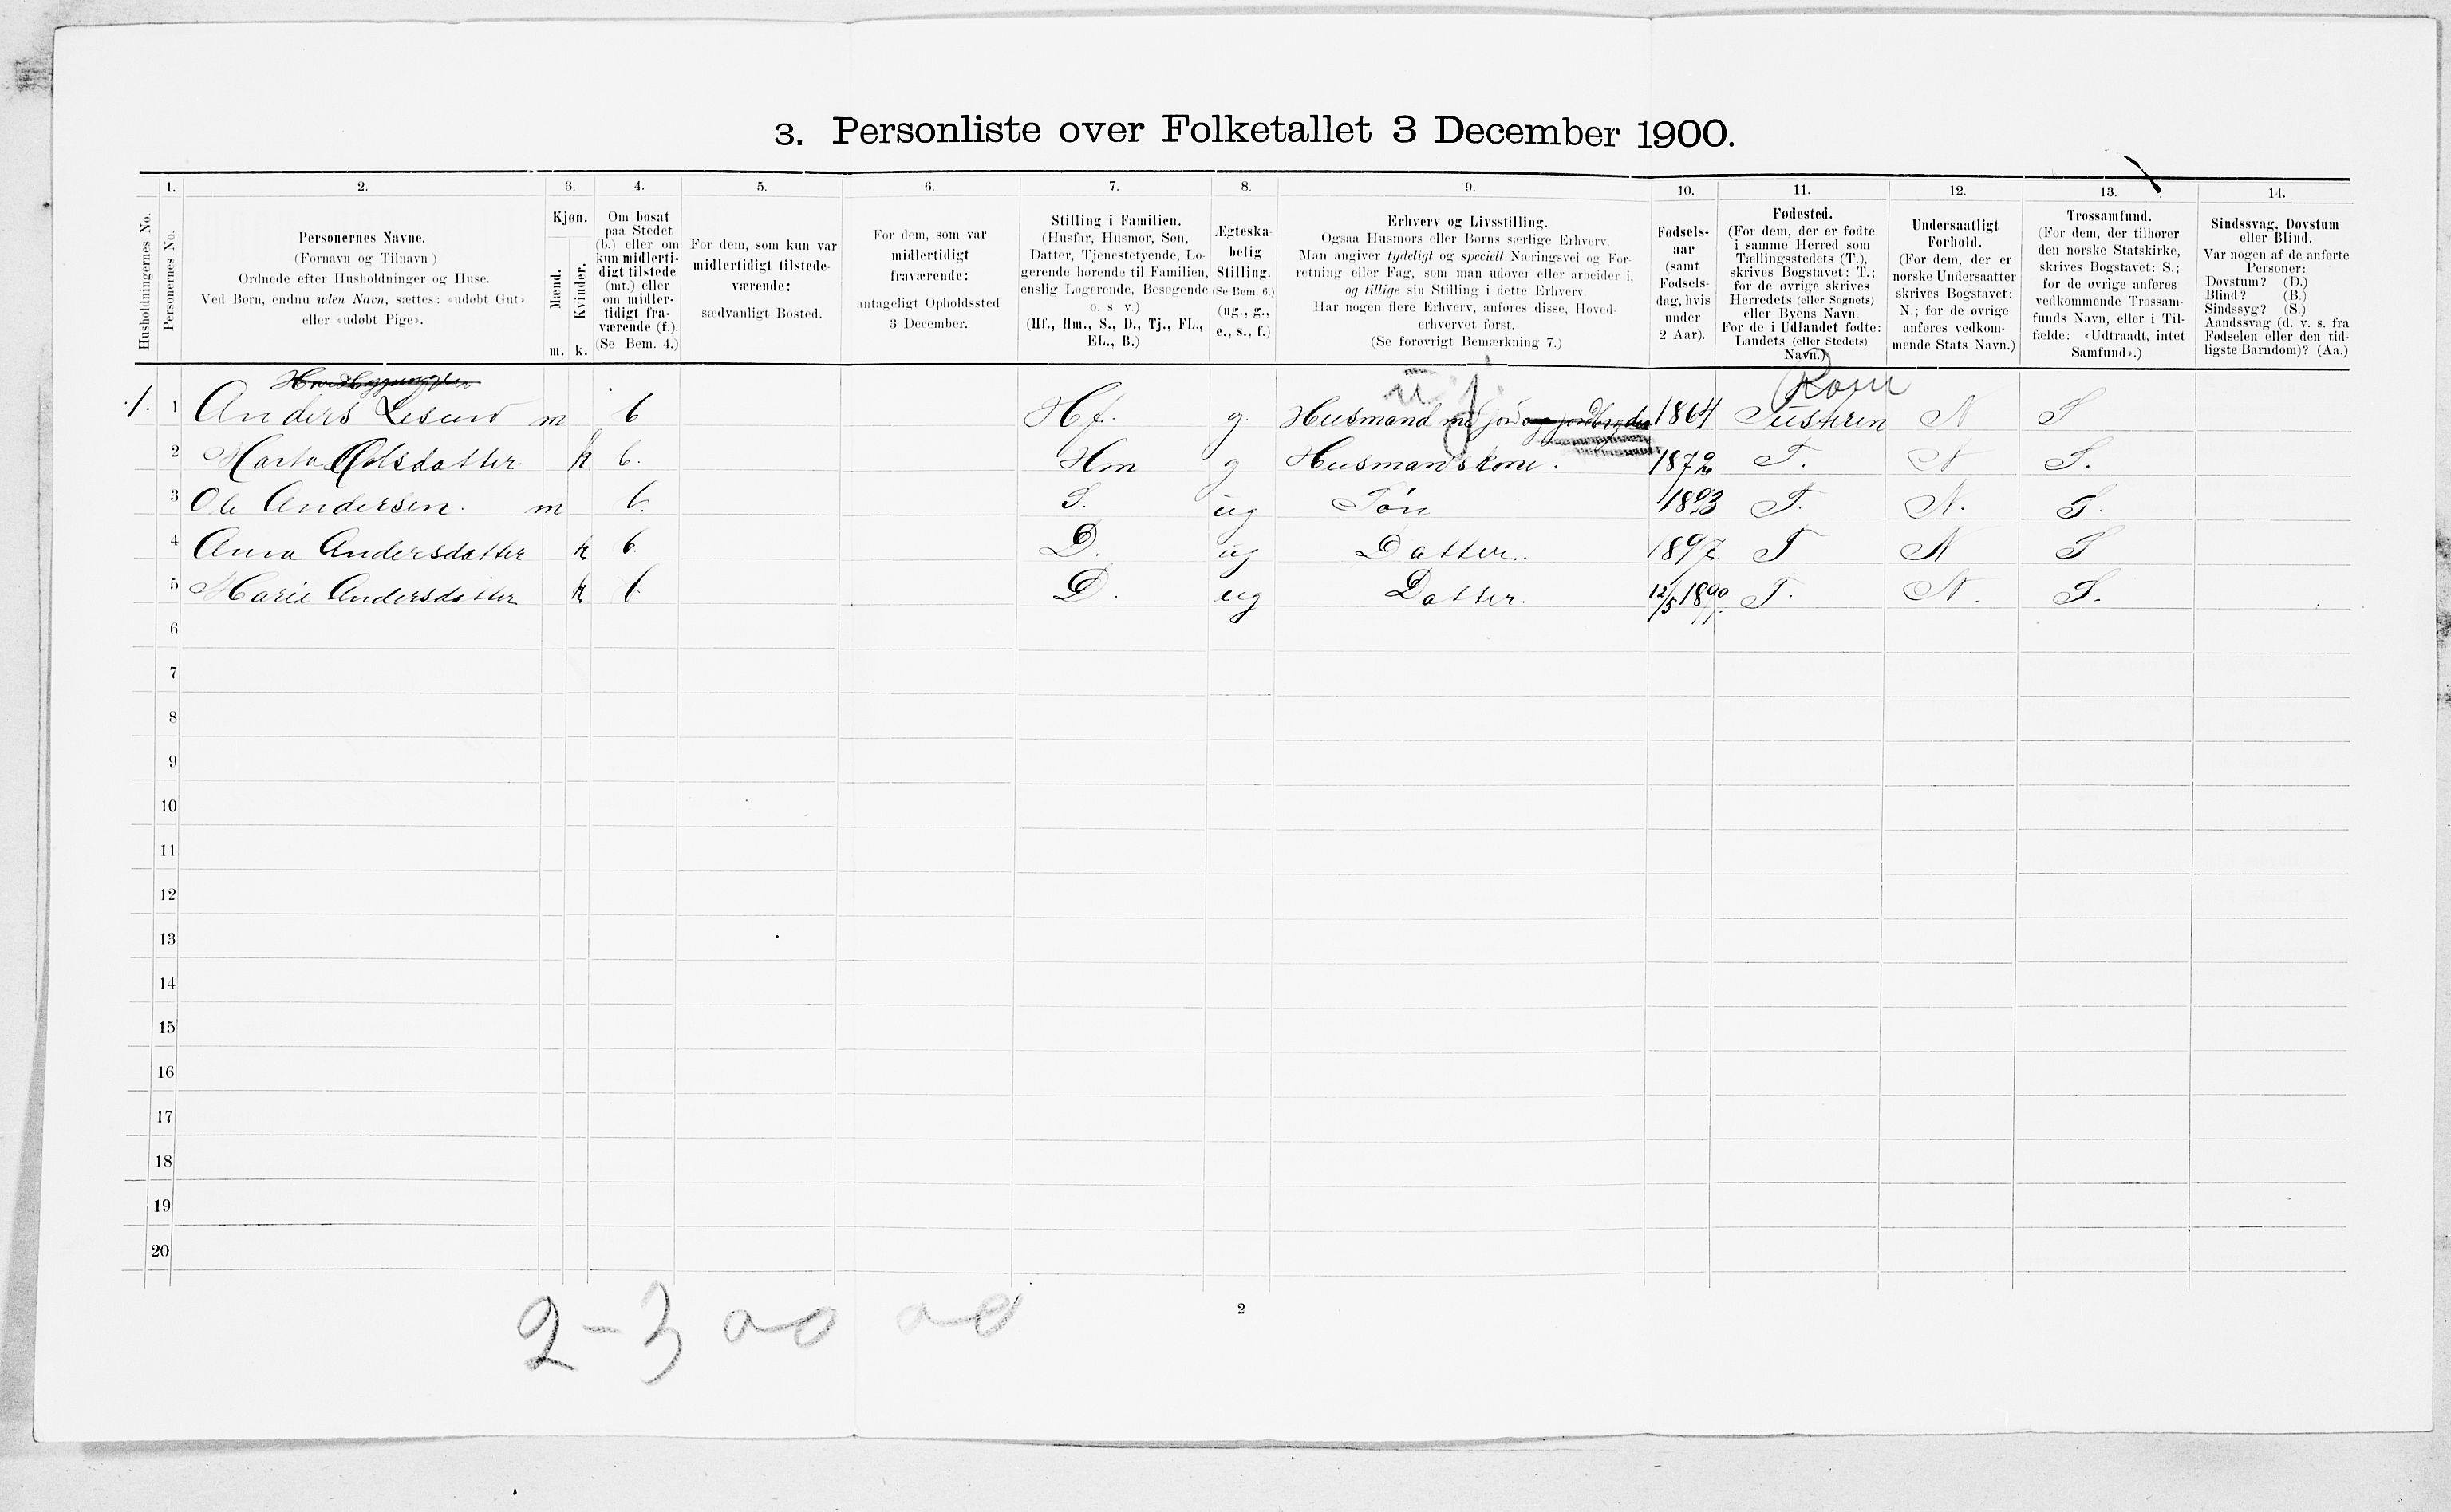 3. Personliste over Folketallet 3 December 1900.
1. 2. 3. 4. 5. 6. 7. 8. 9. 10. 11. 12. 13. 14.
Husholdningernes No.
Personernes No.
Personernes Navne.
(Fornavn og Tilnavn.)
Ordnede efter Husholdninger og Huse.
Ved Børn, endnu uden Navn, sættes: «udøbt Gut»
eller «udøbt Pige».
Kjøn.
Mænd.
Kvinder.
m. k.
Om bosat
paa Stedet
(b.) eller om
kun midlerti-
digt tilstede
(mt.) eller
om midler-
tidigt fra-
værende (f.).
(Se Bem. 4.)
For dem, som kun var
midlertidigt tilstede-
værende:
sædvanligt Bosted.
For dem, som var
midlertidigt
fraværende:
antageligt Opholdssted
3 December.
Stilling i Familien.
(Husfar, Husmor, Søn,
Datter, Tjenestetyende, Lo-
gerende hørende til Familien,
enslig Logerende, Besøgende
o. s. v.)
(Hf., Hm., S., D., Tj., FL.,
EL., B.)
Ægteska-
belig
Stilling.
(Se Bem. 6.)
(ug., g.,
e., s., f.)
Erhverv og Livsstilling.
Ogsaa Husmors eller Børns særlige Erhverv.
Man angiver tydeligt og specielt Næringsvei og For-
retning eller Fag, som man udøver eller arbeider i,
og tillige sin Stilling i dette Erhverv.
Har nogen flere Erhverv, anføres disse, Hoved-
erhvervet først.
(Se forøvrigt Bemærkning 7.)
Fødsels-
aar
(samt
Fødsels-
dag, hvis
under
2 Aar).
Fødested.
(For dem, der er fødte
i samme Herred som
Tællingsstedets (T.),
skrives Bogstavet: T.;
for de øvrige skrives
Herredets (eller Sognets)
eller Byens Navn.
For de i Udlandet fødte:
Landets (eller Stedets)
Navn.)
Undersaatligt
Forhold.
(For dem, der er
norske Undersaatter
skrives Bogstavet:
N.; for de øvrige
anføres vedkom-
mende Stats Navn.)
Trossamfund.
(For dem, der tilhører
den norske Statskirke,
skrives Bogstavet: S.;
for de øvrige anføres
vedkommende Trossam-
funds Navn, eller i Til-
fælde: «Udtraadt, intet
Samfund».)
Sindssvag, Døvstum
eller Blind.
Var nogen af de anførte
Personer:
Døvstum? (D.)
Blind? (B.)
Sindssyg? (S.)
Aandssvag (d. v. s. fra
Fødselen eller den tid-
ligste Barndom)? (Aa.)
Rosm
1. 1 Anders m b Hf. g. Husmand med jord 1864 Tustren N S
2 Marta Olsdatter. k b. Hm g Husmandskone. 1872 T. N S.
3 Ole Andersen. m b. S. ug Søn 1893 T. N. S.
4 Anna Andersdatter k b. D. ug Datter. 1897 T N S
5 Marie Andersdatter k b. D. ug Datter. 12/5 T. N. S.
6
7
8
9
10
11
12
13
14
15
16
17
18
19
20
2
2-3